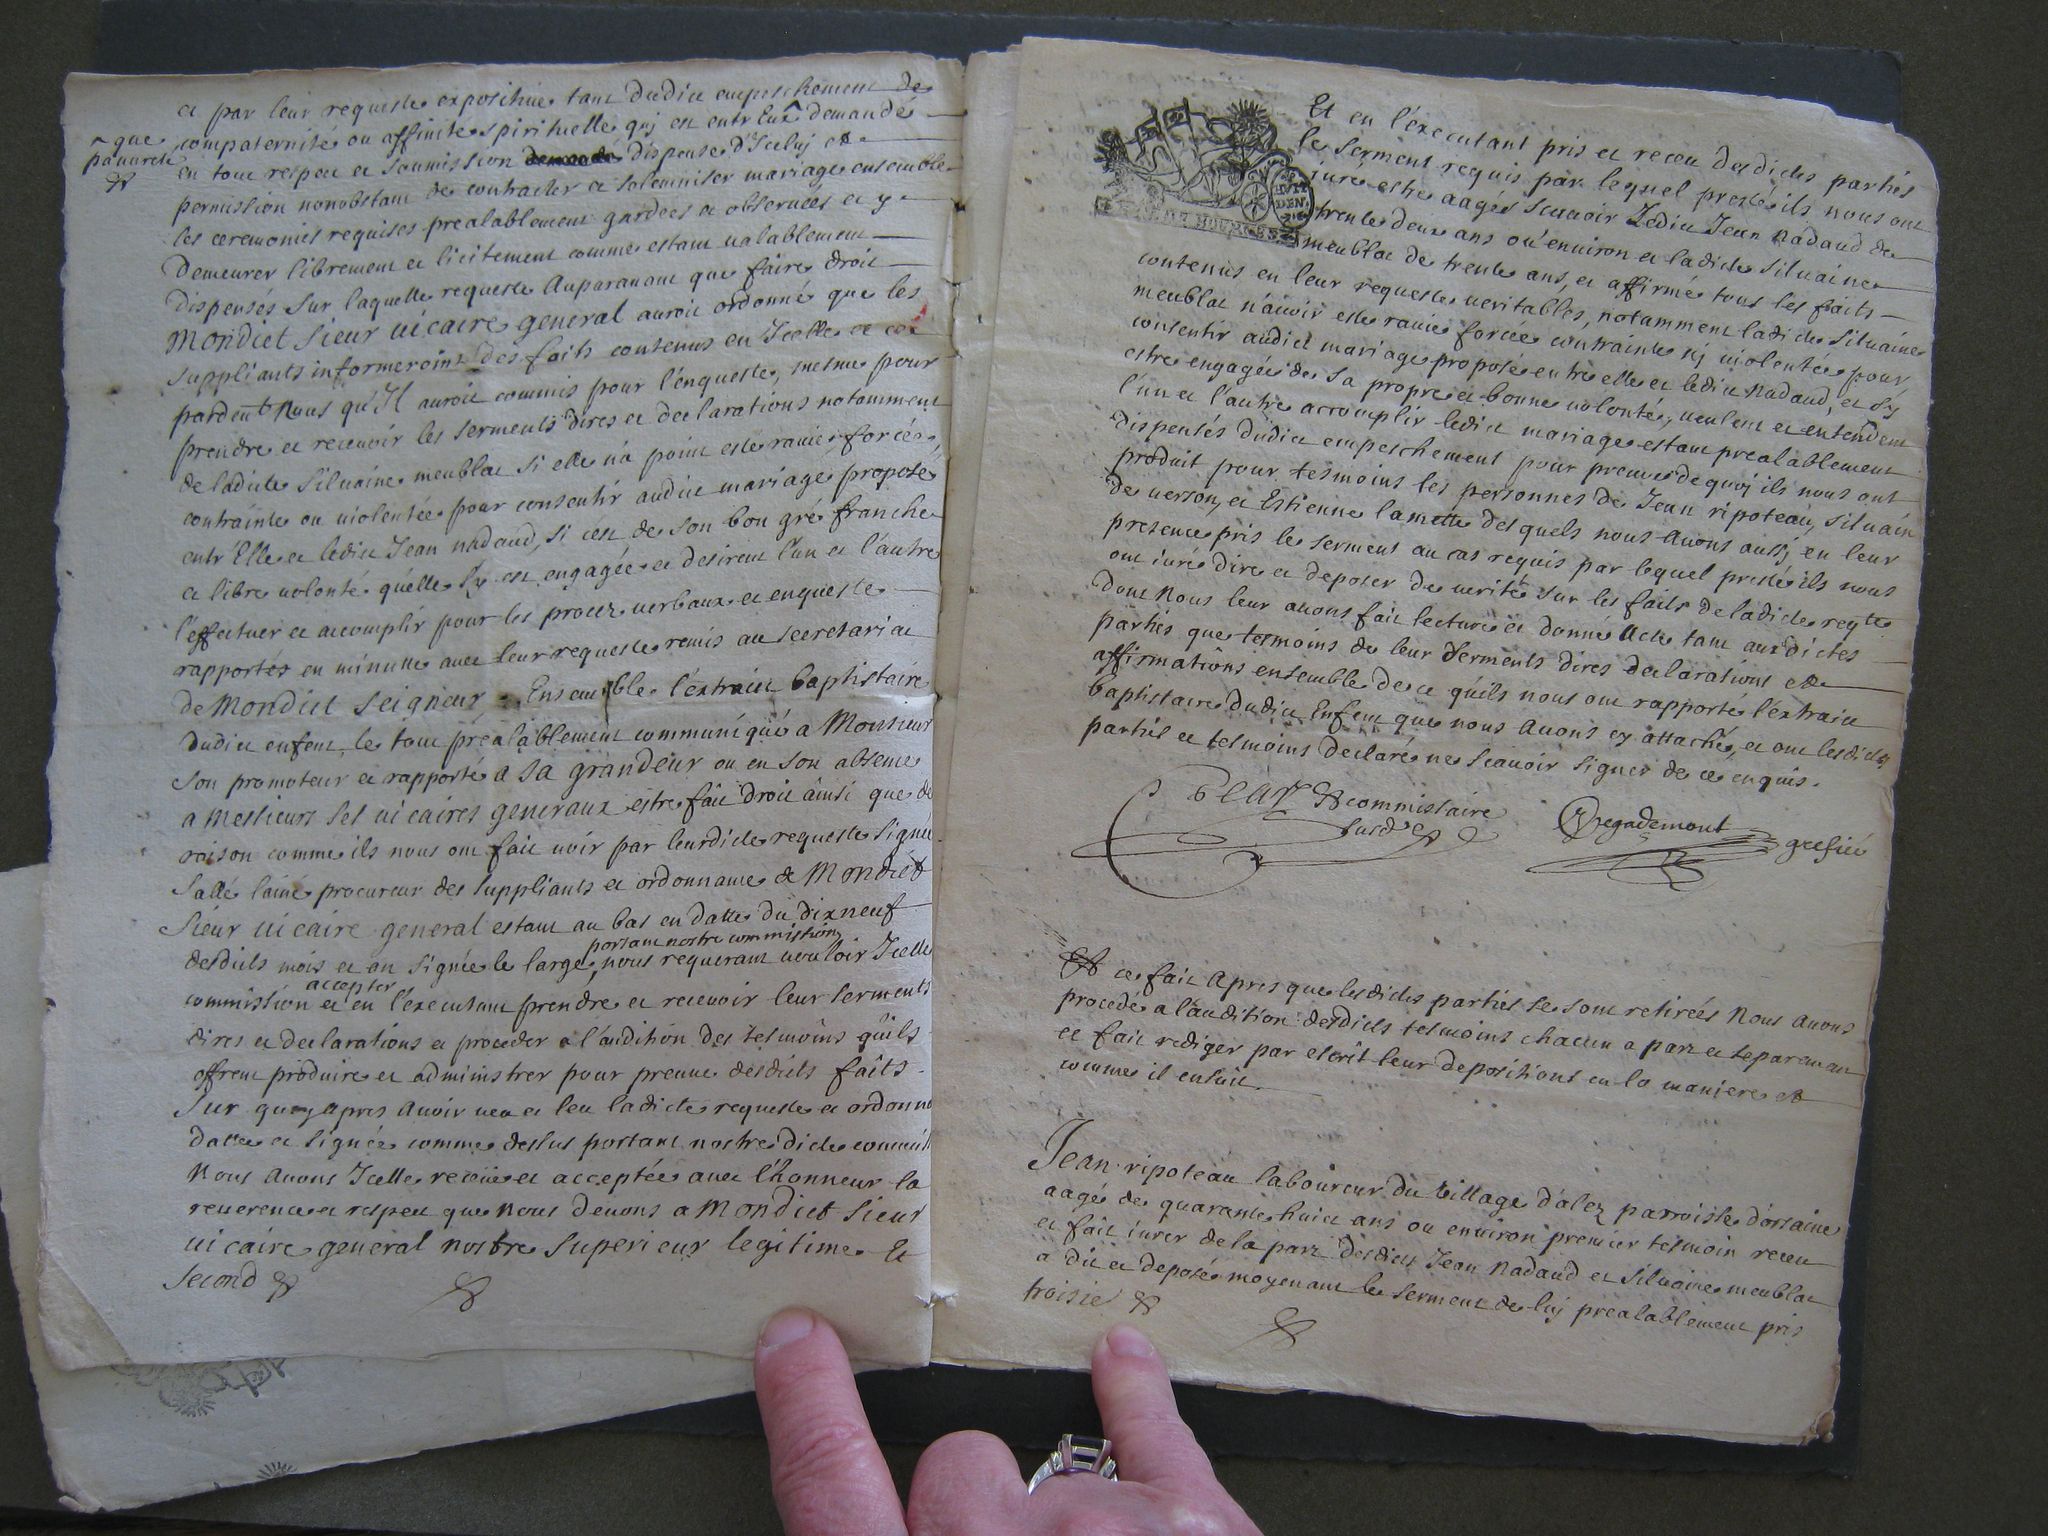 et par leur requeste expositive tant dudict empeschement de
compaternité ou affinité spirituelle qui est entr'Eux^ demandé
^ que
pauvreté
en tout respect et soumission dispense d'Iceluj et
permission nonobstant de contracter et solemniser mariage ensemble
les ceremonies requises prealablement gardees et observeés et y
demeurer librement et licitement comme estant valablement
dispensés sur laquelle requeste Auparavant que faire droit
Mondict Sieur vicaire general auroit ordonné que les
suppliants informeroint des faits contenus en Icelle et ce
pardent Nous qu'Il auroit commis pour l'enqueste, mesme pour
prendre et recevoir les serments dires et declarations notamment
de ladicte Silvaine meublat si elle n'a point esté ravie forcée,
contrainte ou violentée pour consentir audict mariage proposé
entr'Elle et ledict Jean nadaud, si cest de son bon gré franche
et libre volonté quelle s'y est engagée et desirent l'un et l'autre
l'effectuer et accomplir pour les procez verbaux et enqueste
rapportés en minutte avec leur requeste remis au secretariat
de Mondict Seigneur, Ensemble l'extraict baptistaire
dudict enfent, le tout prealablement communiqué a Monsieur
son promoteur et rapporté a sa grandeur ou en son absence
a Messieurs ses vicaires generaux estre fait droit ainsi que de
raison comme ils nous ont fait voir par leurdicte requeste signée
Sallé lainé procureur des suppliants et ordonnance de Mondict
Sieur vicaire general estant au bas en datte du dixneuf
portant nostre commission
desdicts mois et an signée le large, nous requerant vouloir Icelle
accepter
commission et en l'executant prendre et recevoir leur serments
dires et declarations et proceder a l'audition des tesmoins qu'ils
offrent produire et administrer pour preuve desdicts faits
Sur quoy apres Avoir veu et leu ladicte requeste et ordonn
dattée et signée comme dessus portant nostredicte commiss
Nous Avons Icelle receüe et acceptée avec l'honneur la
reverence et respect que Nous Devons a Mondict Sieur
vicaire general nostre superieur legitime Et
second
Et en l'executant pris et receu desdictes parties
le serment requis par lequel presté ils nous ont
juré estre aagés scavoir Ledict Jean nadaud de
trente deux ans ou environ et ladicte silvaine
meublat de trente ans, et affirmé tous les faits
contenus en leur requeste veritables, notamment ladicte silvaine
meublat n'avoir esté ravie forcée contrainte nj violentée pour
consentir audict mariage proposé entre elle et ledict nadaud, et s'y
estre engagée de sa propre et bonne volonté, veulent et entendent
l'un et l'autre accomplir ledict mariage estant prealablement
dispensés dudict empeschement pour preuve de quoj ils nous ont
produit pour tesmoins les personnes de Jean ripoteau, silvain
de verson, et Estienne lamette desquels nous Avons aussj en leur
presence pris le serment au cas requis par lequel presté ils nous
ont juré dire et deposer de verité sur les faits de ladicte reqte
dont Nous leur avons fait lecture et donné Acte tant auxdictes
parties que tesmoins de leur serments dires declarations et
affirmations ensemble de ce quils nous ont rapporté l'extraict
baptistaire dudict Enfent que nous Avons cy attaché, et ont lesdictes
parties et tesmoins declaré ne scavoir signer de ce enquis.
commissaire
susd
Regademont
grefié
HUIT
DEN.
Et ce fait Apres que lesdictes parties se sont retirées Nous Avons
procedé a l'audition desdicts tesmoins chacun a part et separement
et fait rediger par escrit leur depositions en la maniere et
comme il ensuit.
Jean ripoteau laboureur du village d'alez parroisse dorsaine
aagé de quarante huict ans ou environ premier tesmoin receu
et fait jurer de la part desdicts Jean nadaud et Silvaine meublat
a dit et deposé moyenant le serment de luj prealablement pris
troisie